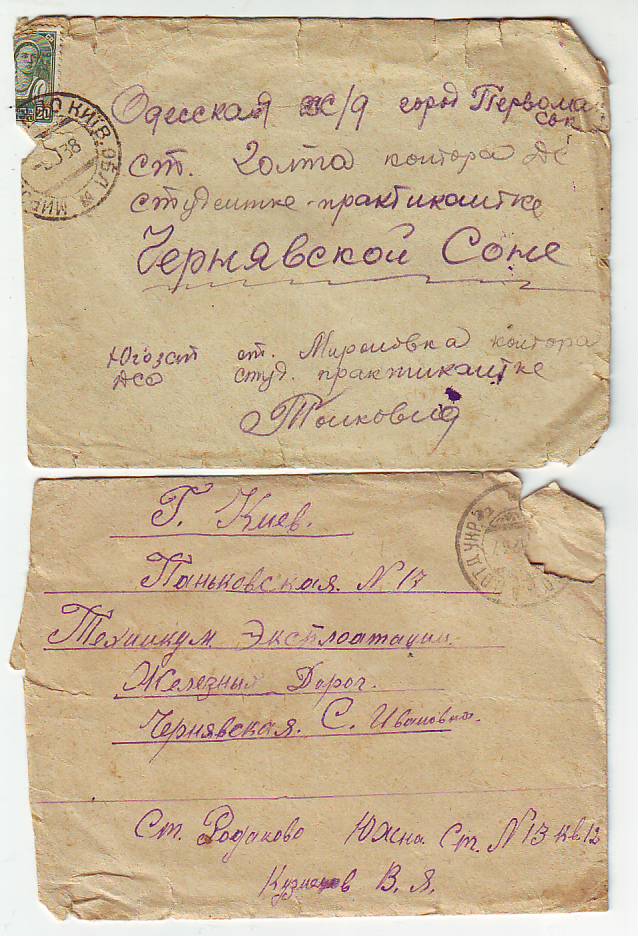 20
КИЇВ. ОБЛ
38
Одесская ж/д город Первома
йск
ст. Голта контора ДС
студентке-практикантке
Чернявской Соне
Югозап ст. Мироновка контора
ДСО студ. практикантке
Г. Киев.
Паньковская. N 17
Техникум Эксплоатации
Железных Дорог.
Чернявская. С. Ивановна.
Ст. Родаково Южна Ст. N 13 кв. 12
Кузнецов В. Я.